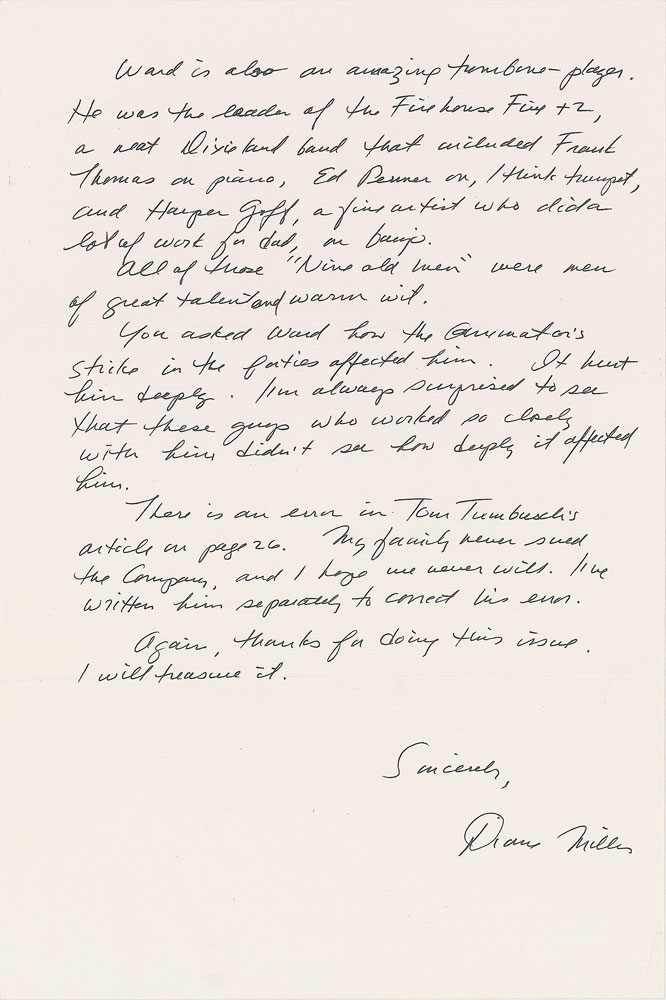 Ward is also an amazing trombone-player.
He was the leader of the Firehouse Five +2,
a neat Dixieland band that included Frank
Thomas on piano, Ed Penner on, I think trumpet,
and Harper Goff, a fine artist who did a
lot of work for dad, on banjo.
All of those "Nine old men" were men
of great talent and warm wit.
You asked Ward how the animator's
strike in the forties affected him. It hurt
him deeply. I'm always surprised to see
that these guys who worked so closely
with him didn't see how deeply it affected
him.
There is an error in Tom Tumbusch's
article on page 26. My family never sued
the Company, and I hope we never will. I've
written him separately to correct his error.
Again, thanks for doing this issue.
I will treasure it.
Sincerely,
Diane Miller